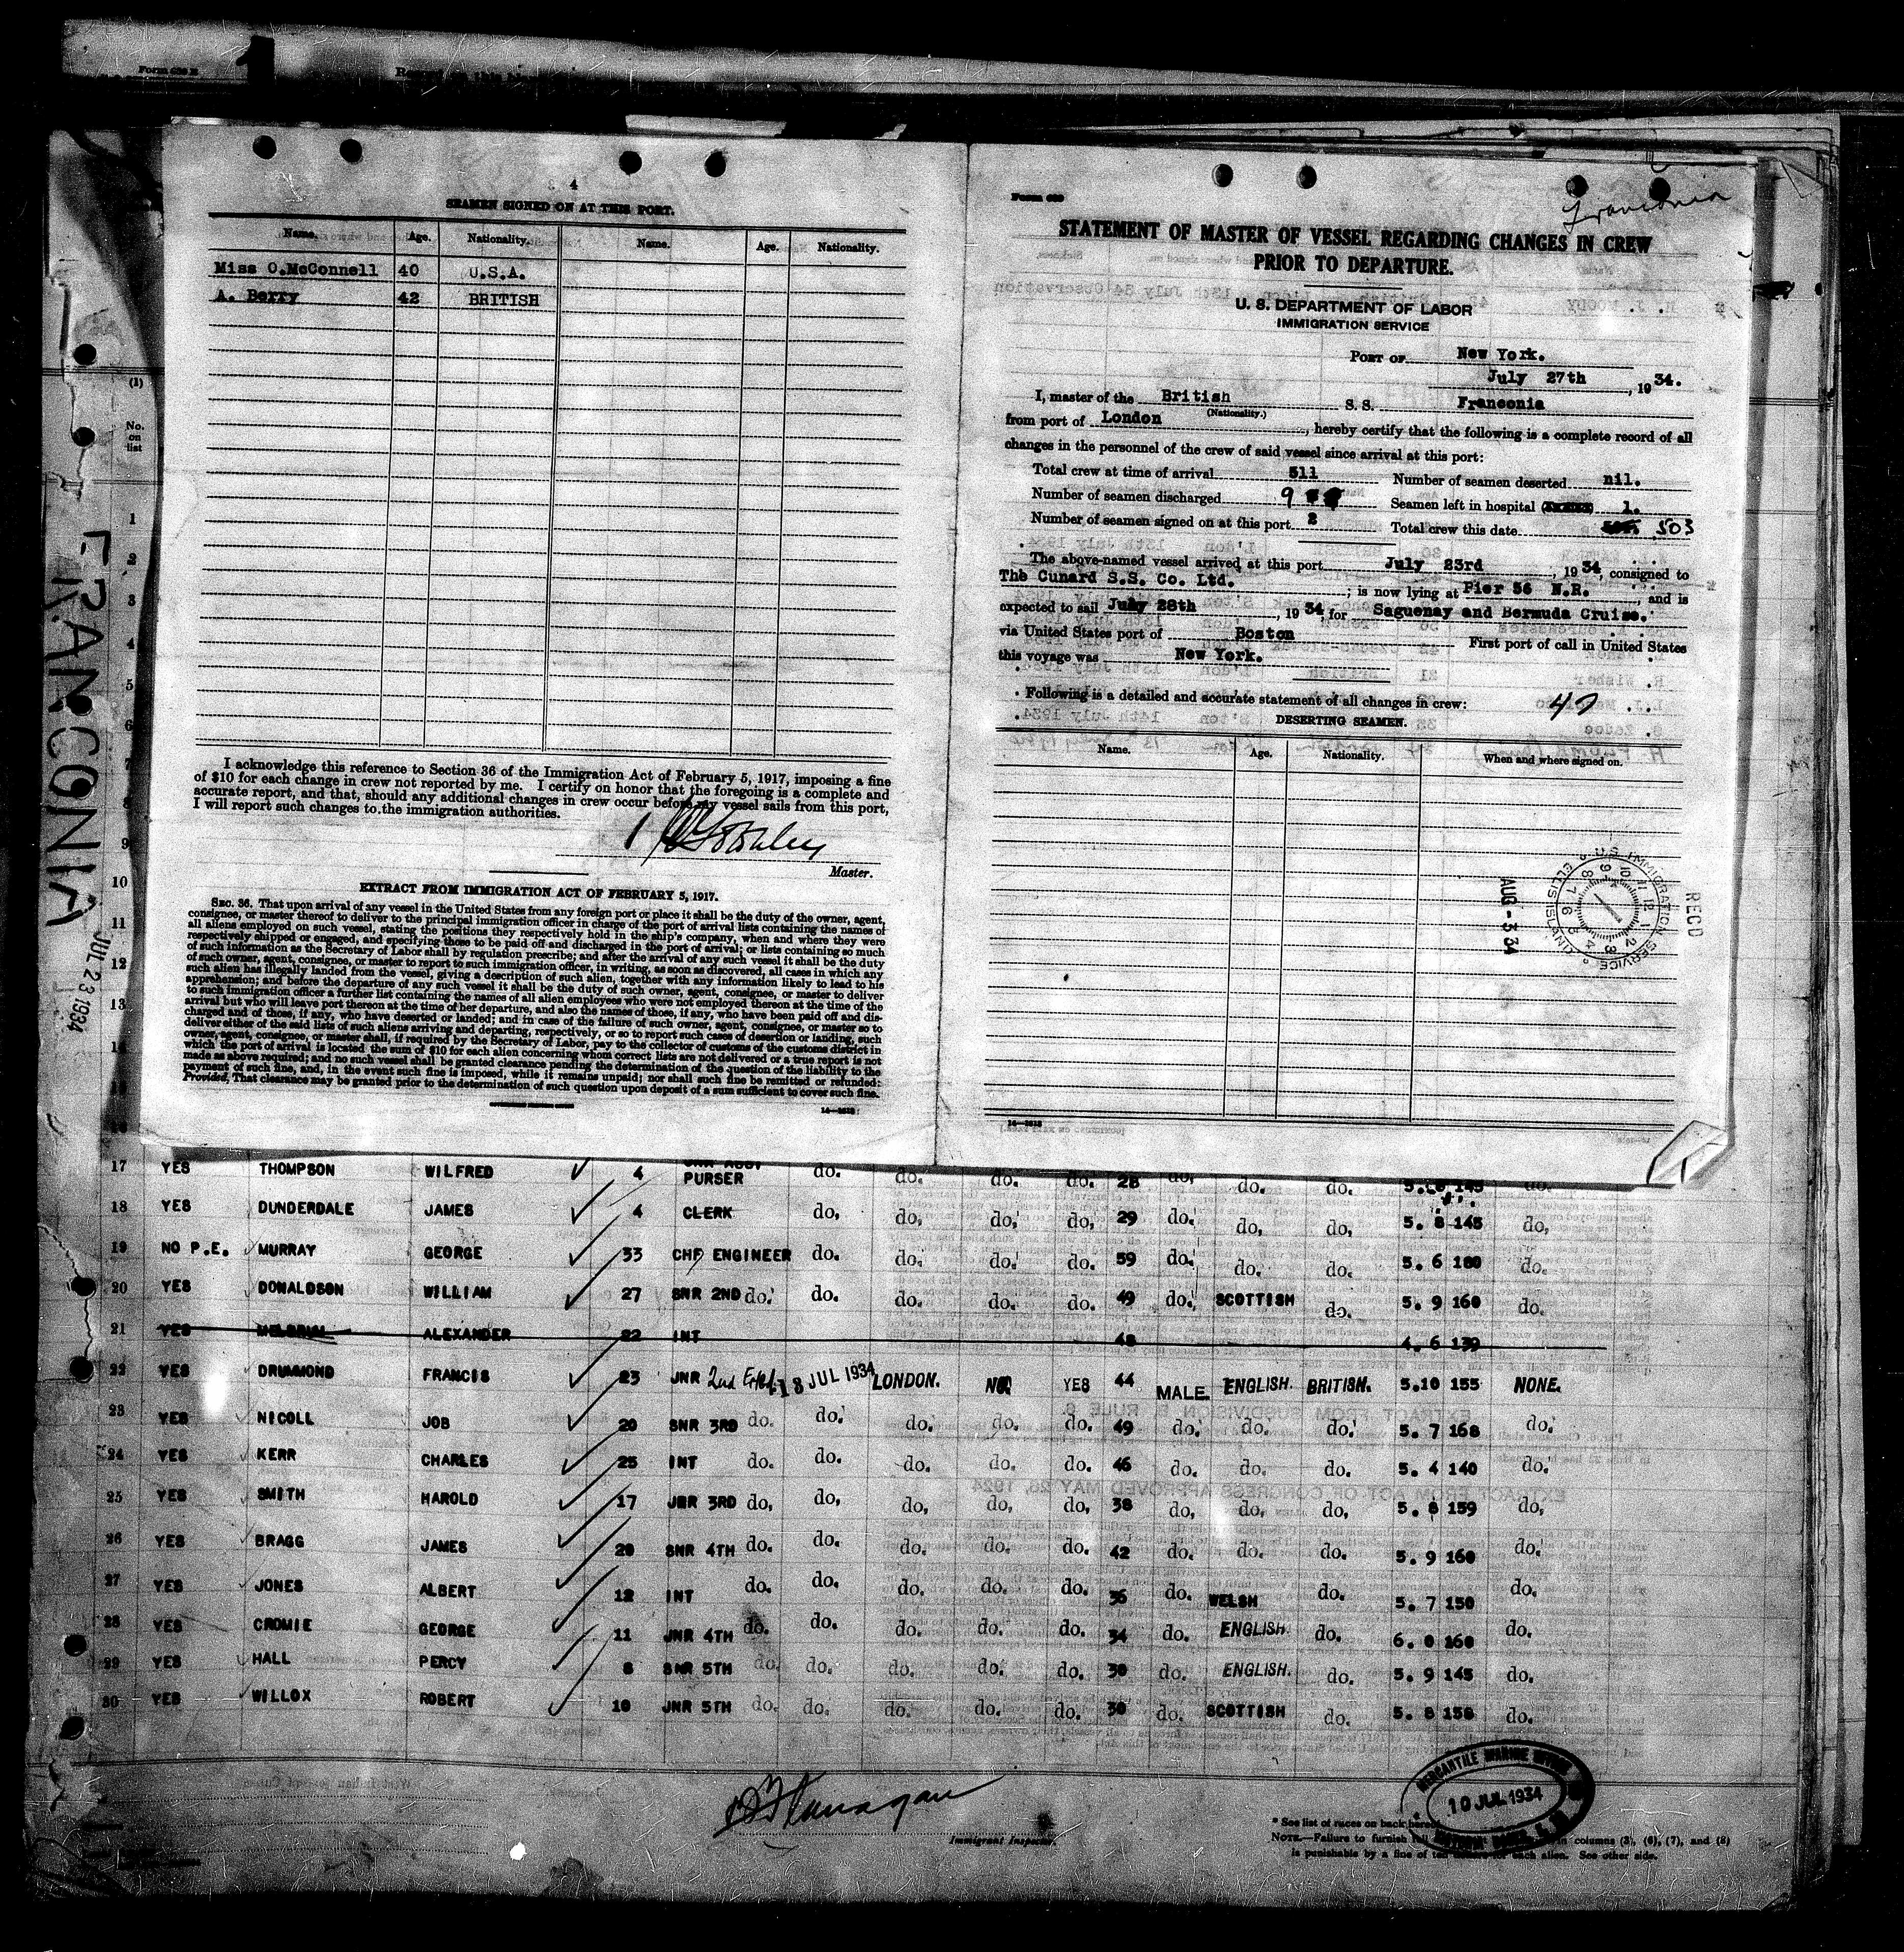 Form 689
4
SEAMEN SIGNED ON AT THIS PORT.
Name. Age. Nationality. Name. Age. Nationality.
Miss O.McConnell 40 U.S.A.
A. Berry 42 BRITISH
I acknowledge this reference to Section 36 of the Immigration Act of February 5, 1917, imposing a fine
of $10 for each change in crew not reported by me. I certify on honor that the foregoing is a complete and
accurate report, and that, should any additional changes in crew occur before my vessel sails from this port,
I will report such changes to the immigration authorities.
Master.
EXTRACT FROM IMMIGRATION ACT OF FEBRUARY 5, 1917.
SEC. 36. That upon arrival of any vessel in the United States from any foreign port or place it shall be the duty of the owner, agent,
consignee, or master thereof to deliver to the principal immigration officer in charge of the port of arrival lists containing the names of
all aliens employed on such vessel, stating the positions they respectively hold in the ship's company, when and where they were
respectively shipped or engaged, and specifying those to be paid off and discharged in the port of arrival; or lists containing so much
of such information as the Secretary of Labor shall by regulation prescribe; and after the arrival of any such vessel it shall be the duty
of such owner, agent, consignee, or master to report to such immigration officer, in writing, as soon as discovered, all cases in which any
such alien has illegally landed from the vessel, giving a description of such alien, together with any information likely to lead to his
apprehension; and before the departure of any such vessel it shall be the duty of such owner, agent, consignee, or master to deliver
to such immigration officer a further list containing the names of all alien employees who were not employed thereon at the time of the
arrival but who will leave port thereon at the time of her departure, and also the names of those, if any, who have been paid off and dis-
charged and of those, if any, who have deserted or landed; and in case of the failure of such owner, agent, consignee, or master so to
deliver either of the said lists of such aliens arriving and departing, respectively, or so to report such cases of desertion or landing, such
owner, agent, consignee, or master shall, if required by the Secretary of Labor, pay to the collector of customs of the customs district in
which the port of arrival is located the sum of $10 for each alien concerning whom correct lists are not delivered or a true report is not
made as above required; and no such vessel shall be granted clearance pending the determination of the question of the liability to the
payment of such fine, and, in the event such fine is imposed, while it remains unpaid; nor shall such fine be remitted or refunded:
Provided, That clearance may be granted prior to the determination of such question upon deposit of a sum sufficient to cover such fine.
Franconia
STATEMENT OF MASTER OF VESSEL REGARDING CHANGES IN CREW
PRIOR TO DEPARTURE.
U. S. DEPARTMENT OF LABOR
IMMIGRATION SERVICE
PORT OF New York.
July 27th, 1934.
I, master of the British S. S. Franconia
(Nationality.)
from port of London, hereby certify that the following is a complete record of all
changes in the personnel of the crew of said vessel since arrival at this port:
Total crew at time of arrival 511 Number of seamen deserted nil.
Number of seamen discharged 9 Seamen left in hospital 1.
Number of seamen signed on at this port 2 Total crew this date 503
The above-named vessel arrived at this port July 23rd, 1934, consigned to
The Cunard S.S. Co. Ltd.; is now lying at Pier 56 N.R., and is
expected to sail July 28th, 1934, for Saguenay and Bermuda Cruise.
via United States port of Boston First port of call in United States
this voyage was New York.
Following is a detailed and accurate statement of all changes in crew:
DESERTING SEAMEN.
Name. Age. Nationality. When and where signed on.
RECD
U.S. IMMIGRATION SERVICE ELLIS ISLAND
AUG -3 34
14-2618
(1)
No. on list
FRANCONIA
JUL 23 1934
1
2
3
4
5
6
7
8
9
10
11
12
13
14
17 YES THOMPSON WILFRED 4 PURSER do. do. do. do. 28 do. do. do. do.
18 YES DUNDERDALE JAMES 4 CLERK do. do. do. do. 29 do. do. do. 5. 8 145 do.
19 NO P.E. MURRAY GEORGE 33 CHF ENGINEER do. do. do. do. 59 do. do. do. 5. 6 180 do.
20 YES DONALDSON WILLIAM 27 SNR 2ND do. do. do. do. do. 49 do. SCOTTISH do. 5. 9 160 do.
21 YES ALEXANDER 22 INT 48 4. 6 139
22 YES DRUMMOND FRANCIS 23 JNR 2nd 18 JUL 1934 LONDON. NO YES 44 MALE ENGLISH. BRITISH. 5.10 155 NONE.
23 YES NICOLL JOB 20 SNR 3RD do. do. do. do. do. 49 do. do. do. 5. 7 168 do.
24 YES KERR CHARLES 25 INT do. do. do. do. do. 46 do. do. do. 5. 4 140 do.
25 YES SMITH HAROLD 17 JNR 3RD do. do. do. do. do. 38 do. do. do. 5. 8 159 do.
26 YES BRAGG JAMES 20 SNR 4TH do. do. do. do. do. 42 do. do. do. 5. 9 160 do.
27 YES JONES ALBERT 12 INT do. do. do. do. do. 36 do. WELSH do. 5. 7 150 do.
28 YES CROMIE GEORGE 11 JNR 4TH do. do. do. do. do. 34 do. ENGLISH. do. 6. 0 160 do.
29 YES HALL PERCY 8 SNR 5TH do. do. do. do. do. 30 do. ENGLISH. do. 5. 9 145 do.
30 YES WILLOX ROBERT 10 JNR 5TH do. do. do. do. do. 30 do. SCOTTISH do. 5. 8 158 do.
Flanagan
Immigrant Inspector.
MERCANTILE MARINE OFFICE
10 JUL 1934
* See list of races on back hereof
NOTE.—Failure to furnish full in columns (3), (6), (7), and (8)
is punishable by a fine of ten dollars for each alien. See other side.